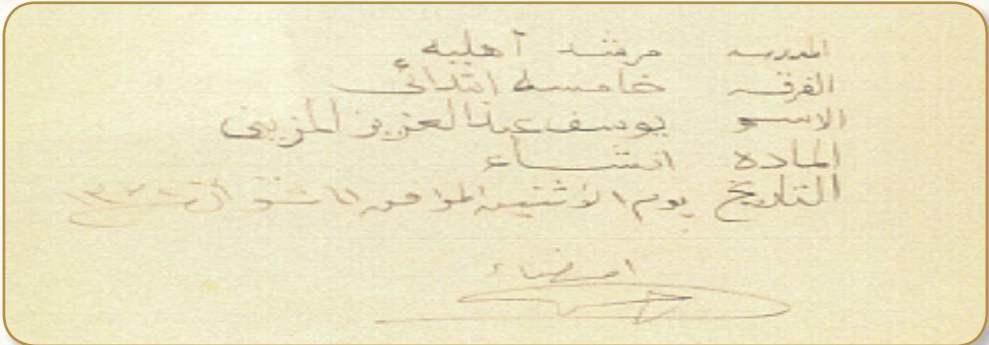 المدرسه مرشد آهليه
الفرقه خامسه ابتدائى
الاسم يوسف عبد العزيز المزينى
الماده انشاء
التاريخ يوم الاثنين الموافق شوال
امضاء